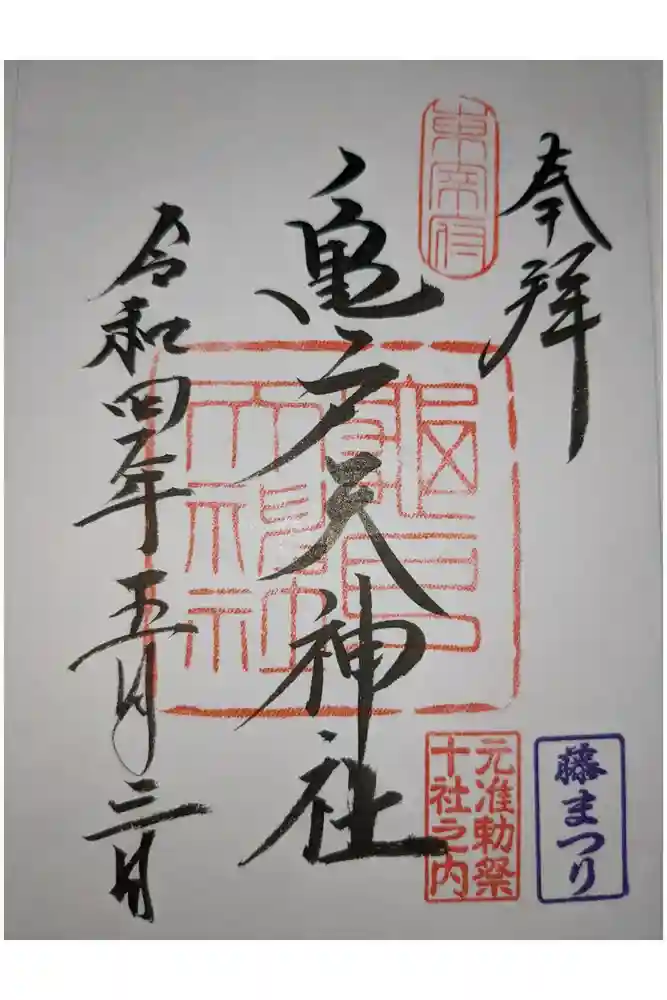 奉拝
東宰府
亀戸天神社
龜戸
天神社
令和四年五月三日
元准勅祭
十社之内
藤まつり